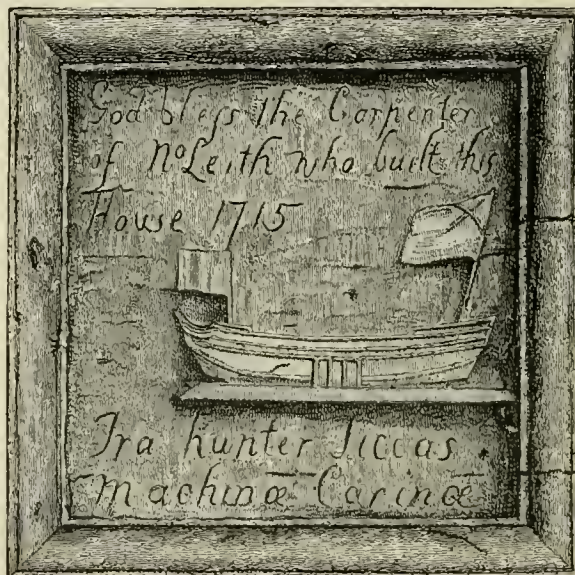 God bless the Carpenter
of No Leith who built this
House 1715
Tra hunter siccas.
Machinœ Carinœ